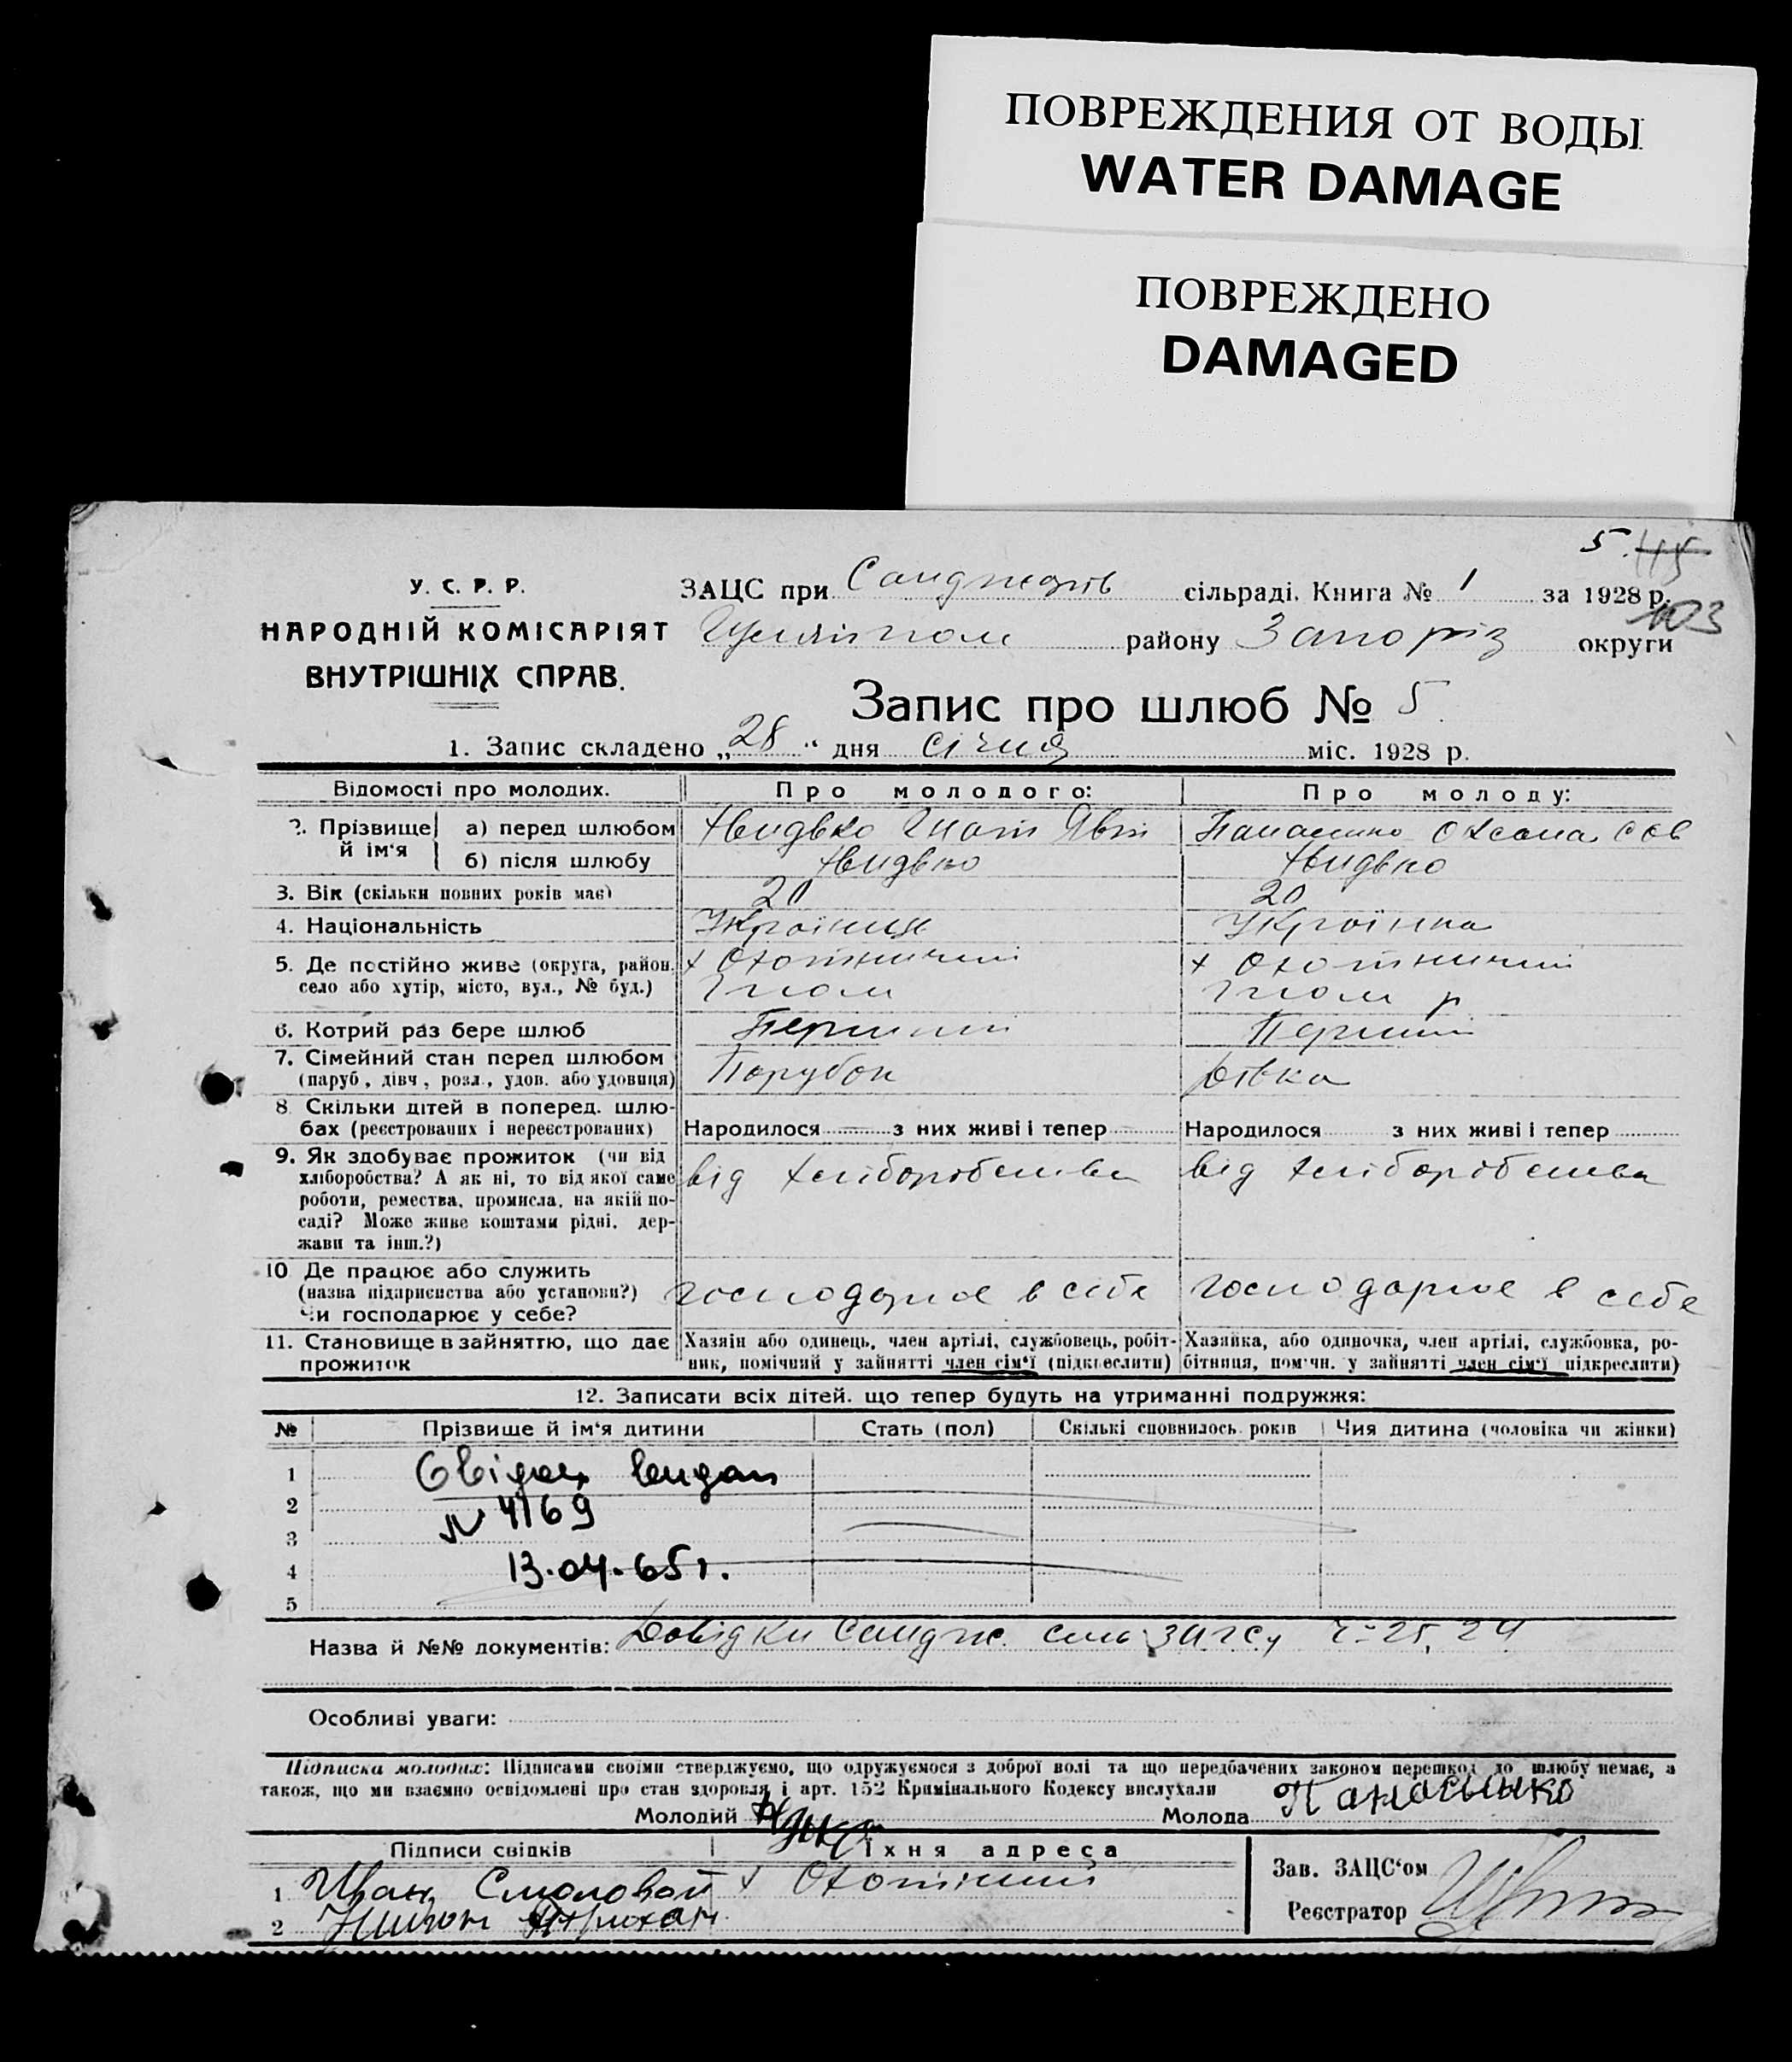 ПОВРЕЖДЕНИЯ ОТ ВОДЫ
WATER DAMAGE
ПОВРЕЖДЕНО
DAMAGED
5. 115
103
У. С. Р. Р.
НАРОДНІЙ КОМІСАРІЯТ
ВНУТРІШНІХ СПРАВ.
ЗАЦС при Санджарів сільраді. Книга № 1 за 1928 р.
Гуляйпол району Запоріз округи
Запис про шлюб № 5
1. Запис складено „28“ дня січня міс. 1928 р.
Відомості про молодих. Про молодого: Про молоду:
2. Прізвище й ім‘я а) перед шлюбом Гнат Явт Оксана Сав
б) після шлюбу
3. Вік (скільки повних років має) 20 20
4. Національність Українец Українка
5. Де постійно живе (округа, район, х Охотничий х Охотничий
село або хутір, місто, вул., № буд.) Гпол Гпол р
6. Котрий раз бере шлюб Перший Перший
7. Сімейний стан перед шлюбом Парубок Дівка
(паруб, дівч, розл., удов. або удовиця)
8. Скільки дітей в поперед. шлю-
бах (реєстрованих і нереєстрованих) Народилося — з них живі і тепер Народилося з них живі і тепер
9. Як здобуває прожиток (чи від від хліборобства від хліборобства
хліборобства? А як ні, то від якої саме
роботи, ремества, промисла, на якій по-
саді? Може живе коштами рідні, дер-
жави та інш.?)
10 Де працює або служить господарює в себе господарює в себе
(назва підприєнства або установи?)
Чи господарює у себе?
11. Становище в зайняттю, що дає Хазяїн або одинець, член артілі, службовець, робіт- Хазяйка, або одиночка, член артілі, службовка, ро-
прожиток ник, помічний у зайнятті член сім‘ї (підкреслити) бітниця, поміч. у зайнятті член сім‘ї підкреслити)
12. Записати всіх дітей, що тепер будуть на утриманні подружжя:
№ Прізвище й ім‘я дитини Стать (пол) Скількі сповнилось років Чия дитина (чоловіка чи жінки)
1
2 № 4169
3
4 13.04.65 г.
5
Назва й №№ документів: Довідки Сандж. сель ЗАГСу ч = 25, 24
Особливі уваги:
Підписка молодих: Підписами своїми стверджуємо, що одружуємося з доброї волі та що передбачених законом перешкод до шлюбу немає, а
також, що ми взаємно освідомлені про стан здоровля і арт. 152 Крімінального Кодексу вислухали
Молодий Молода Панасынко
Підписи свідків їхня адреса
1 Иван Смоловой х Охотничий
2
Зав. ЗАЦС‘ом
Реєстратор